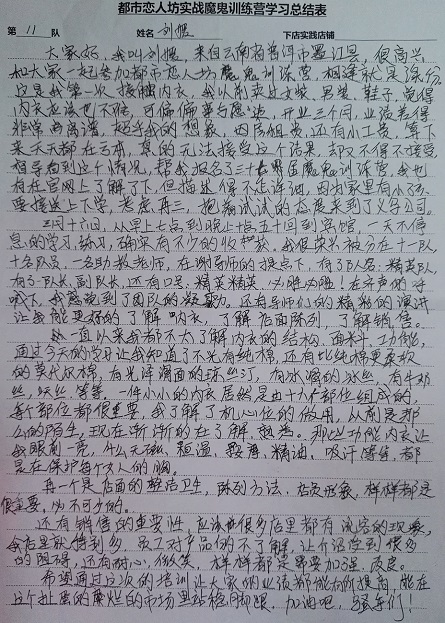 都市恋人坊实战魔鬼训练营学习总结表
第 11 队 姓名 刘媚 下店实践店铺
大家好，我叫刘媚，来自云南省普洱市墨江县，很高兴
和大家一起参加都市恋人坊魔鬼训练营，相逢就是缘份
这是我第一次接触内衣，我以前卖过女装、男装、鞋子，觉得
内衣应该也不难，可偏偏事与愿违，开业三个月，业绩差得
非常离谱，超乎我的想象，因房租贵，还有小工资，算下
来天天都在亏本，真的无法接受这个结果，却又不得不接受
指导看到这个情况，帮我报名了三十届魔鬼训练营，我也
有在官网上了解了下，但描述得不是详细，因为家里有小孩
要接送上下学，考虑再三，抱着试试的态度来到了义乌公司。
三月十六日，从早上七点到晚上十点五十回到宾馆，一天不停
息的学习、练习，确实有不少的收获。我很荣兴被分在十一队
十名队员，一名助教老师，在谢导师的提点下，有了队名：精英队，
有了队长，副队长，还有口号：精英精英 必胜必胜！在齐声的呼
喊下，我感受到了团队的凝聚力。还有导师们的精彩的演讲
让我能更好的了解内衣，了解店面陈列，了解销售。
一直以来我都不太了解内衣的结构、面料、功能，
通过今天的学习让我知道了不光有纯棉，还有比纯棉更柔软
的莫代尔棉，有光泽滑面的锦丝汀，有冰滑的冰丝，有牛奶
丝，天丝等等。一件小小的内衣居然是由十六个部位组成的，
每个部位都很重要，我了解了机心位的做用，从前是那
么的陌生，现在渐渐的在了解、熟悉。那些功能内衣让
我眼前一亮，什么无痕、恒温、按摩、精油、吸汗等等，都
是在保护每个女人的胸。
再一个是店面的整洁卫生，陈列方法、店员形象，样样都是
很重要，必不可少的。
还有销售的重要性，应该很多店里都有试穿的现象，
我店里就得到多 员工对产品的不了解，让介绍受到很多
的阻碍，还有耐心，微笑，样样都是需要加强、改良。
希望通过这次的培训让大家的业绩都能有所提高，能在
这个扯蛋的糜烂的市场里站稳脚跟，加油吧，骚年们！